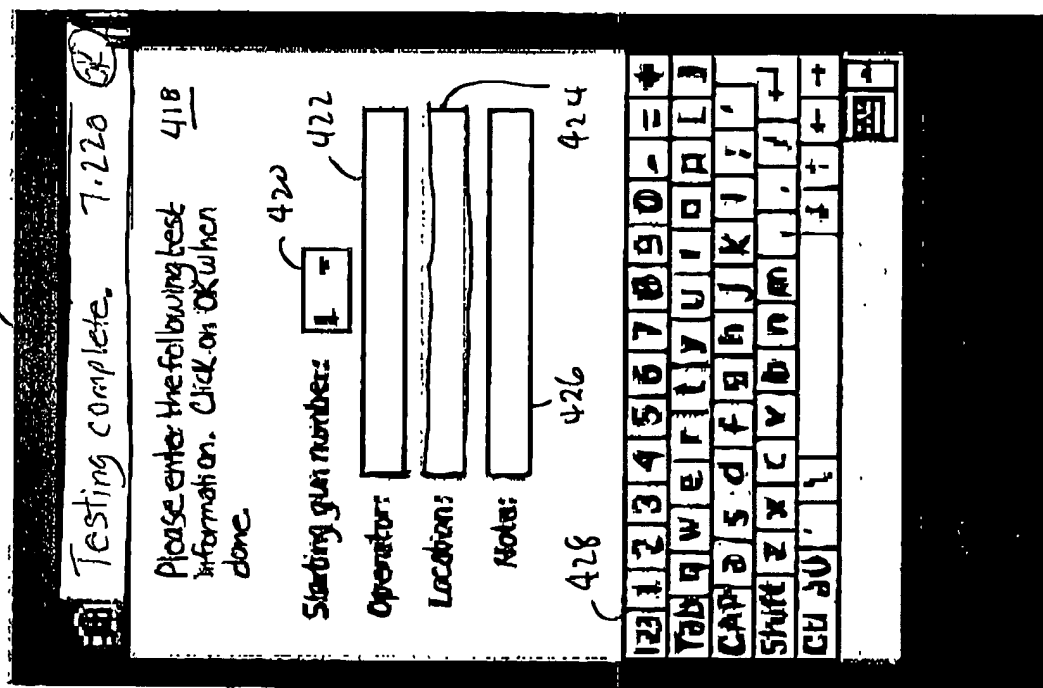 Testing complete. 7:22a ok
Please enter the following test 418
information. Click on OK when
done.
420
Starting gun number: 1
422
Operator:
Location:
424
Note:
426
428
123 1 2 3 4 5 6 7 8 9 0 - =
Tab q w e r t y u i o p [ ]
CAP a s d f g h j k l ; '
Shift z x c v b n m , . /
Ctl áü ` \